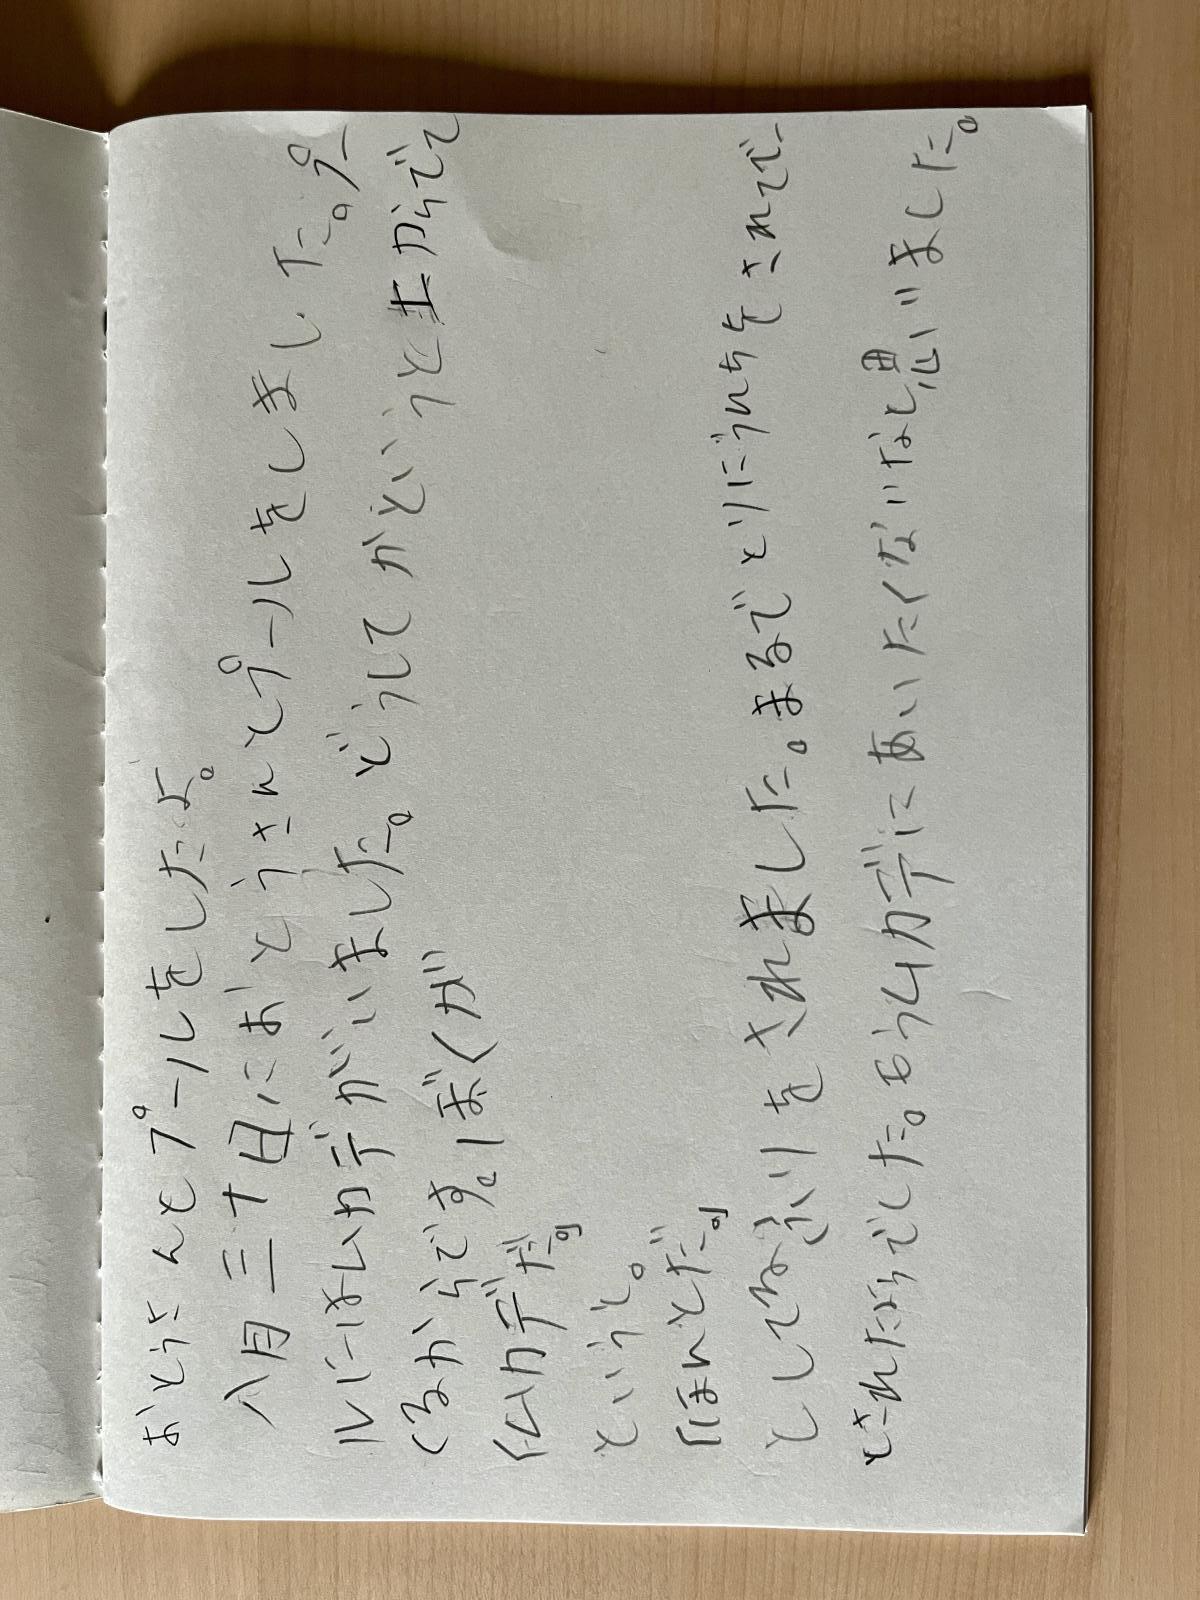 おとうさんとプールをしたよ。
八月三十日におとうさんとプールをしました。プー
ルにはムカデがいました。どうしてかというと土からでて
くるからです。ぼくが
「ムカデだ。」
というと。
「ほんとだ。」
としてるふりをされました。まるでとりにうんちをされて
とされたようでした。もうムカデにあいたくないなと思いました。